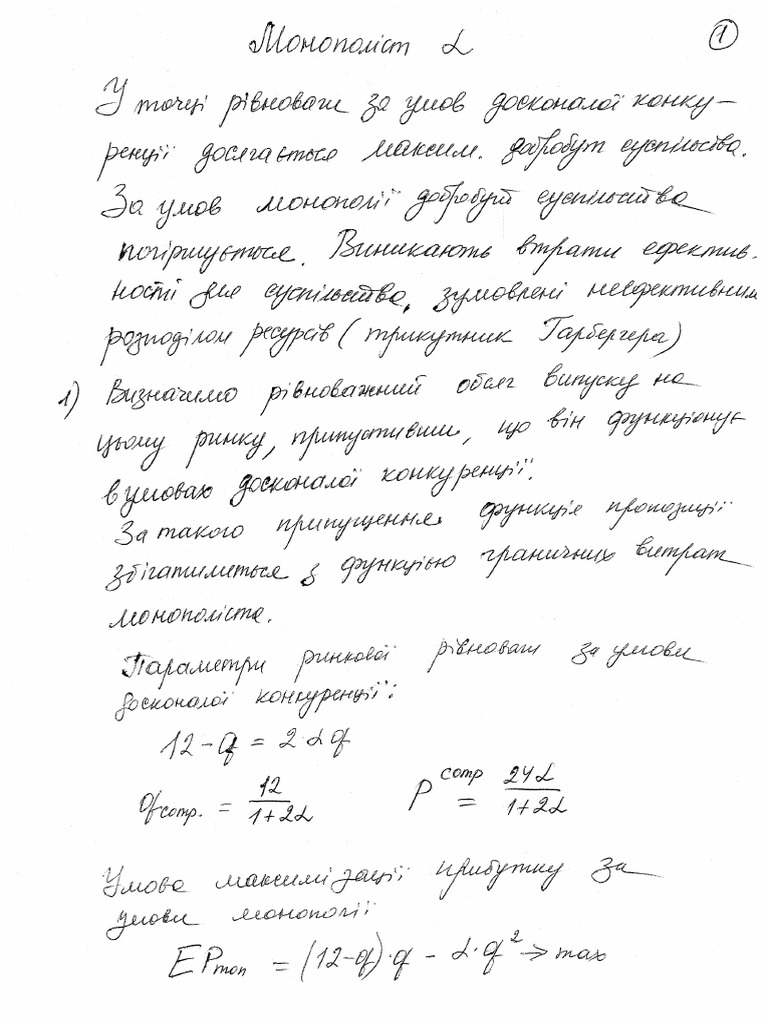 Монополіст α
1
У точці рівноваги за умов досконалої конку-
ренції досягається максим. добробут суспільства.
За умов монополії добробут суспільства
погіршується. Виникають втрати ефектив-
ності для суспільства, зумовлені неефективним
розподілом ресурсів (трикутник Гарбергера)
1) Визначимо рівноважний обсяг випуску на
цьому ринку, припустивши, що він функціонує
в умовах досконалої конкуренції.
За такого припущення функція пропозиції
збігатиметься з функцією граничних витрат
монополіста.
Параметри ринкової рівноваги за умови
досконалої конкуренції:
12 - q = 2·αq
q comp. = 12/(1+2α) P^comp = 24α/(1+2α)
Умова максимізації прибутку за
умови монополії
EP mon = (12-q)·q - α·q² → max